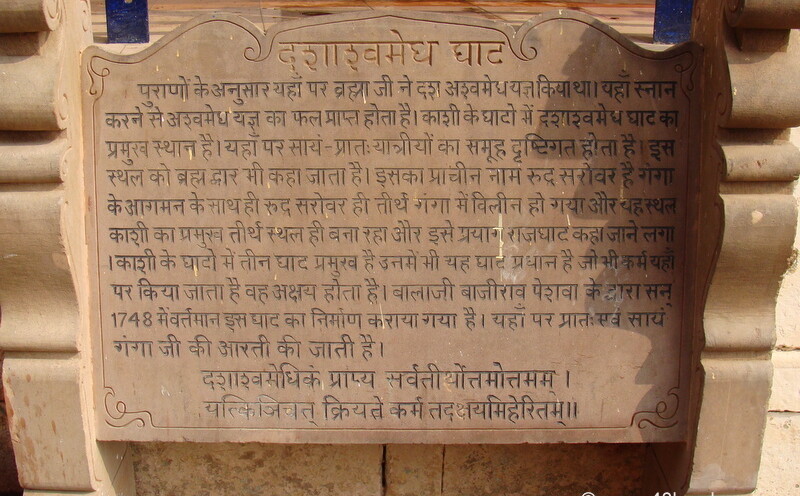 दशाश्वमेध घाट
पुराणों के अनुसार यहाँ पर ब्रह्मा जी ने दश अश्वमेध यज्ञ किया था। यहाँ स्नान
करने से अश्वमेध यज्ञ का फल प्राप्त होता है। काशी के घाटो में दशाश्वमेध घाट का
प्रमुख स्थान है। यहाँ पर सायं-प्रातः यात्रीयों का समूह दृष्टिगत होता है। इस
स्थल को ब्रह्म द्वार भी कहा जाता है। इसका प्राचीन नाम रुद्र सरोवर है गंगा
के आगमन के साथ ही रुद्र सरोवर ही तीर्थ गंगा में विलीन हो गया और यह स्थल
काशी का प्रमुख तीर्थ स्थल ही बना रहा और इसे प्रयाग राजघाट कहा जाने लगा
। काशी के घाटो में तीन घाट प्रमुख है उनमें भी यह घाट प्रधान है जो भी कर्म यहाँ
पर किया जाता है वह अक्षय होता है। बालाजी बाजीराव पेशवा के द्वारा सन्
1748 में वर्तमान इस घाट का निर्माण कराया गया है। यहाँ पर प्रातः एवं सायं
गंगा जी की आरती की जाती है।
दशाश्वमेधिकं प्राप्य सर्वतीर्थोत्तमोत्तमम।
यत्किञ्चित् क्रियते कर्म तदक्षयमिहेरितम्॥